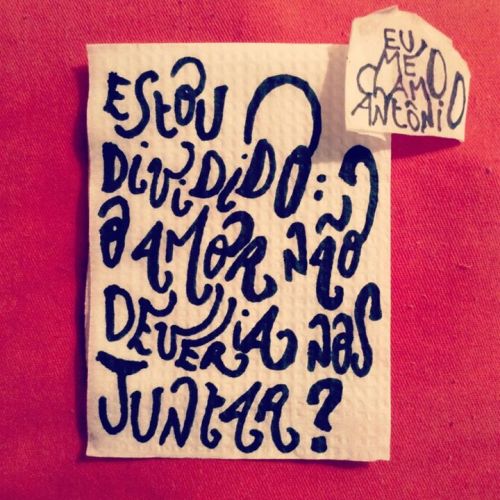 ESTOU
DIVIDIDO:
O AMOR NÃO
DEVERIA NOS
JUNTAR?
EU
ME
CHAMO
ANTÔNIO